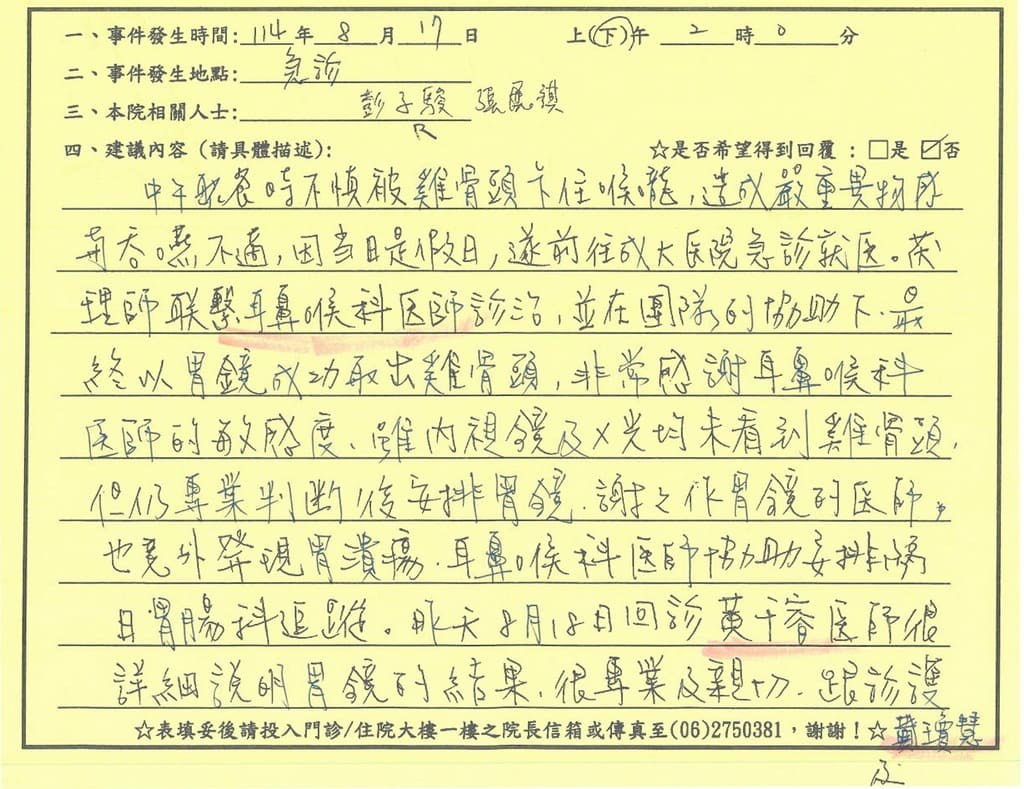 一、事件發生時間: 114 年 8 月 17 日 上(下)午 2 時 0 分
二、事件發生地點: 急診
三、本院相關人士: 彭子駿 張
R
四、建議內容(請具體描述): ☆是否希望得到回覆:□是 ☑否
中午用餐時不慎被雞骨頭卡住喉嚨,造成嚴重異物感
與吞嚥不適,因当日是假日,遂前往成大医院急診就医。
理師联繫耳鼻喉科医師診治,並在團隊的協助下.最
終以胃鏡成功取出雞骨頭,非常感謝耳鼻喉科
医師的敏感度、雖內視鏡及X光均未看到雞骨頭,
但仍專業判斷後安排胃鏡.謝之作胃鏡的医師,
也意外発現胃潰瘍.耳鼻喉科医師協助安排
日胃腸科追蹤。昨天8月18日回診黃千容医師很
詳細說明胃鏡的結果.很專業及親切.跟診護
☆表填妥後請投入門診/住院大樓一樓之院長信箱或傳真至(06)2750381,謝謝!☆ 戴瓊慧